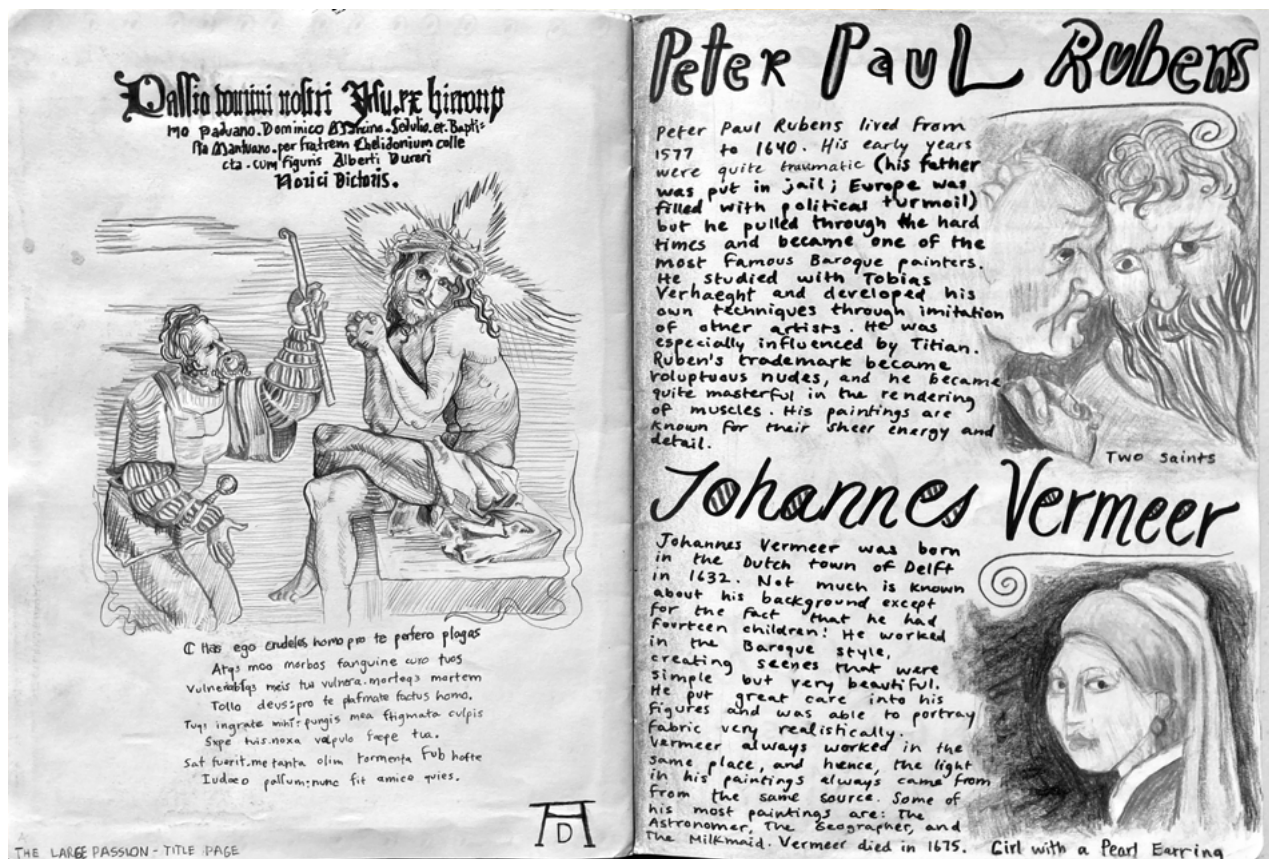 Passio domini nostri Jesu.ex hieronp
mo Paduano.Dominico Mancino.Sedulio.et.Bapti=
sta Mantuano.per fratrem Chelidonium colle
cta.cum figuris Alberti Dureri
Norici Pictoris.
Has ego crudeles homo pro te perfero plagas
Atqs meo morbos sanguine curo tuos
Vulneribusqs meis tua vulnera.morteqs mortem
Tollo deus:pro te plasmate factus homo.
Tuqs ingrate mihi:pungis mea stigmata culpis
Sepe tuis.noxa vapulo saepe tua.
Sat fuerit.me tanta olim tormenta sub hoste
Iudaeo passum:nunc sit amice quies.
AD
THE LARGE PASSION - TITLE PAGE
Peter Paul Rubens
Peter Paul Rubens lived from
1577 to 1640. His early years
were quite traumatic (his father
was put in jail; Europe was
filled with political turmoil)
but he pulled through the hard
times and became one of the
most famous Baroque painters.
He studied with Tobias
Verhaeght and developed his
own techniques through imitation
of other artists. He was
especially influenced by Titian.
Ruben's trademark became
voluptuous nudes, and he became
quite masterful in the rendering
of muscles. His paintings are
known for their sheer energy and
detail.
Two saints
Johannes Vermeer
Johannes Vermeer was born
in the Dutch town of Delft
in 1632. Not much is known
about his background except
for the fact that he had
fourteen children! He worked
in the Baroque style,
creating scenes that were
simple but very beautiful.
He put great care into his
figures and was able to portray
fabric very realistically.
Vermeer always worked in the
same place, and hence, the light
in his paintings always came from
from the same source. Some of
his most paintings are: The
Astronomer, The Geographer, and
The Milkmaid. Vermeer died in 1675.
Girl with a Pearl Earring